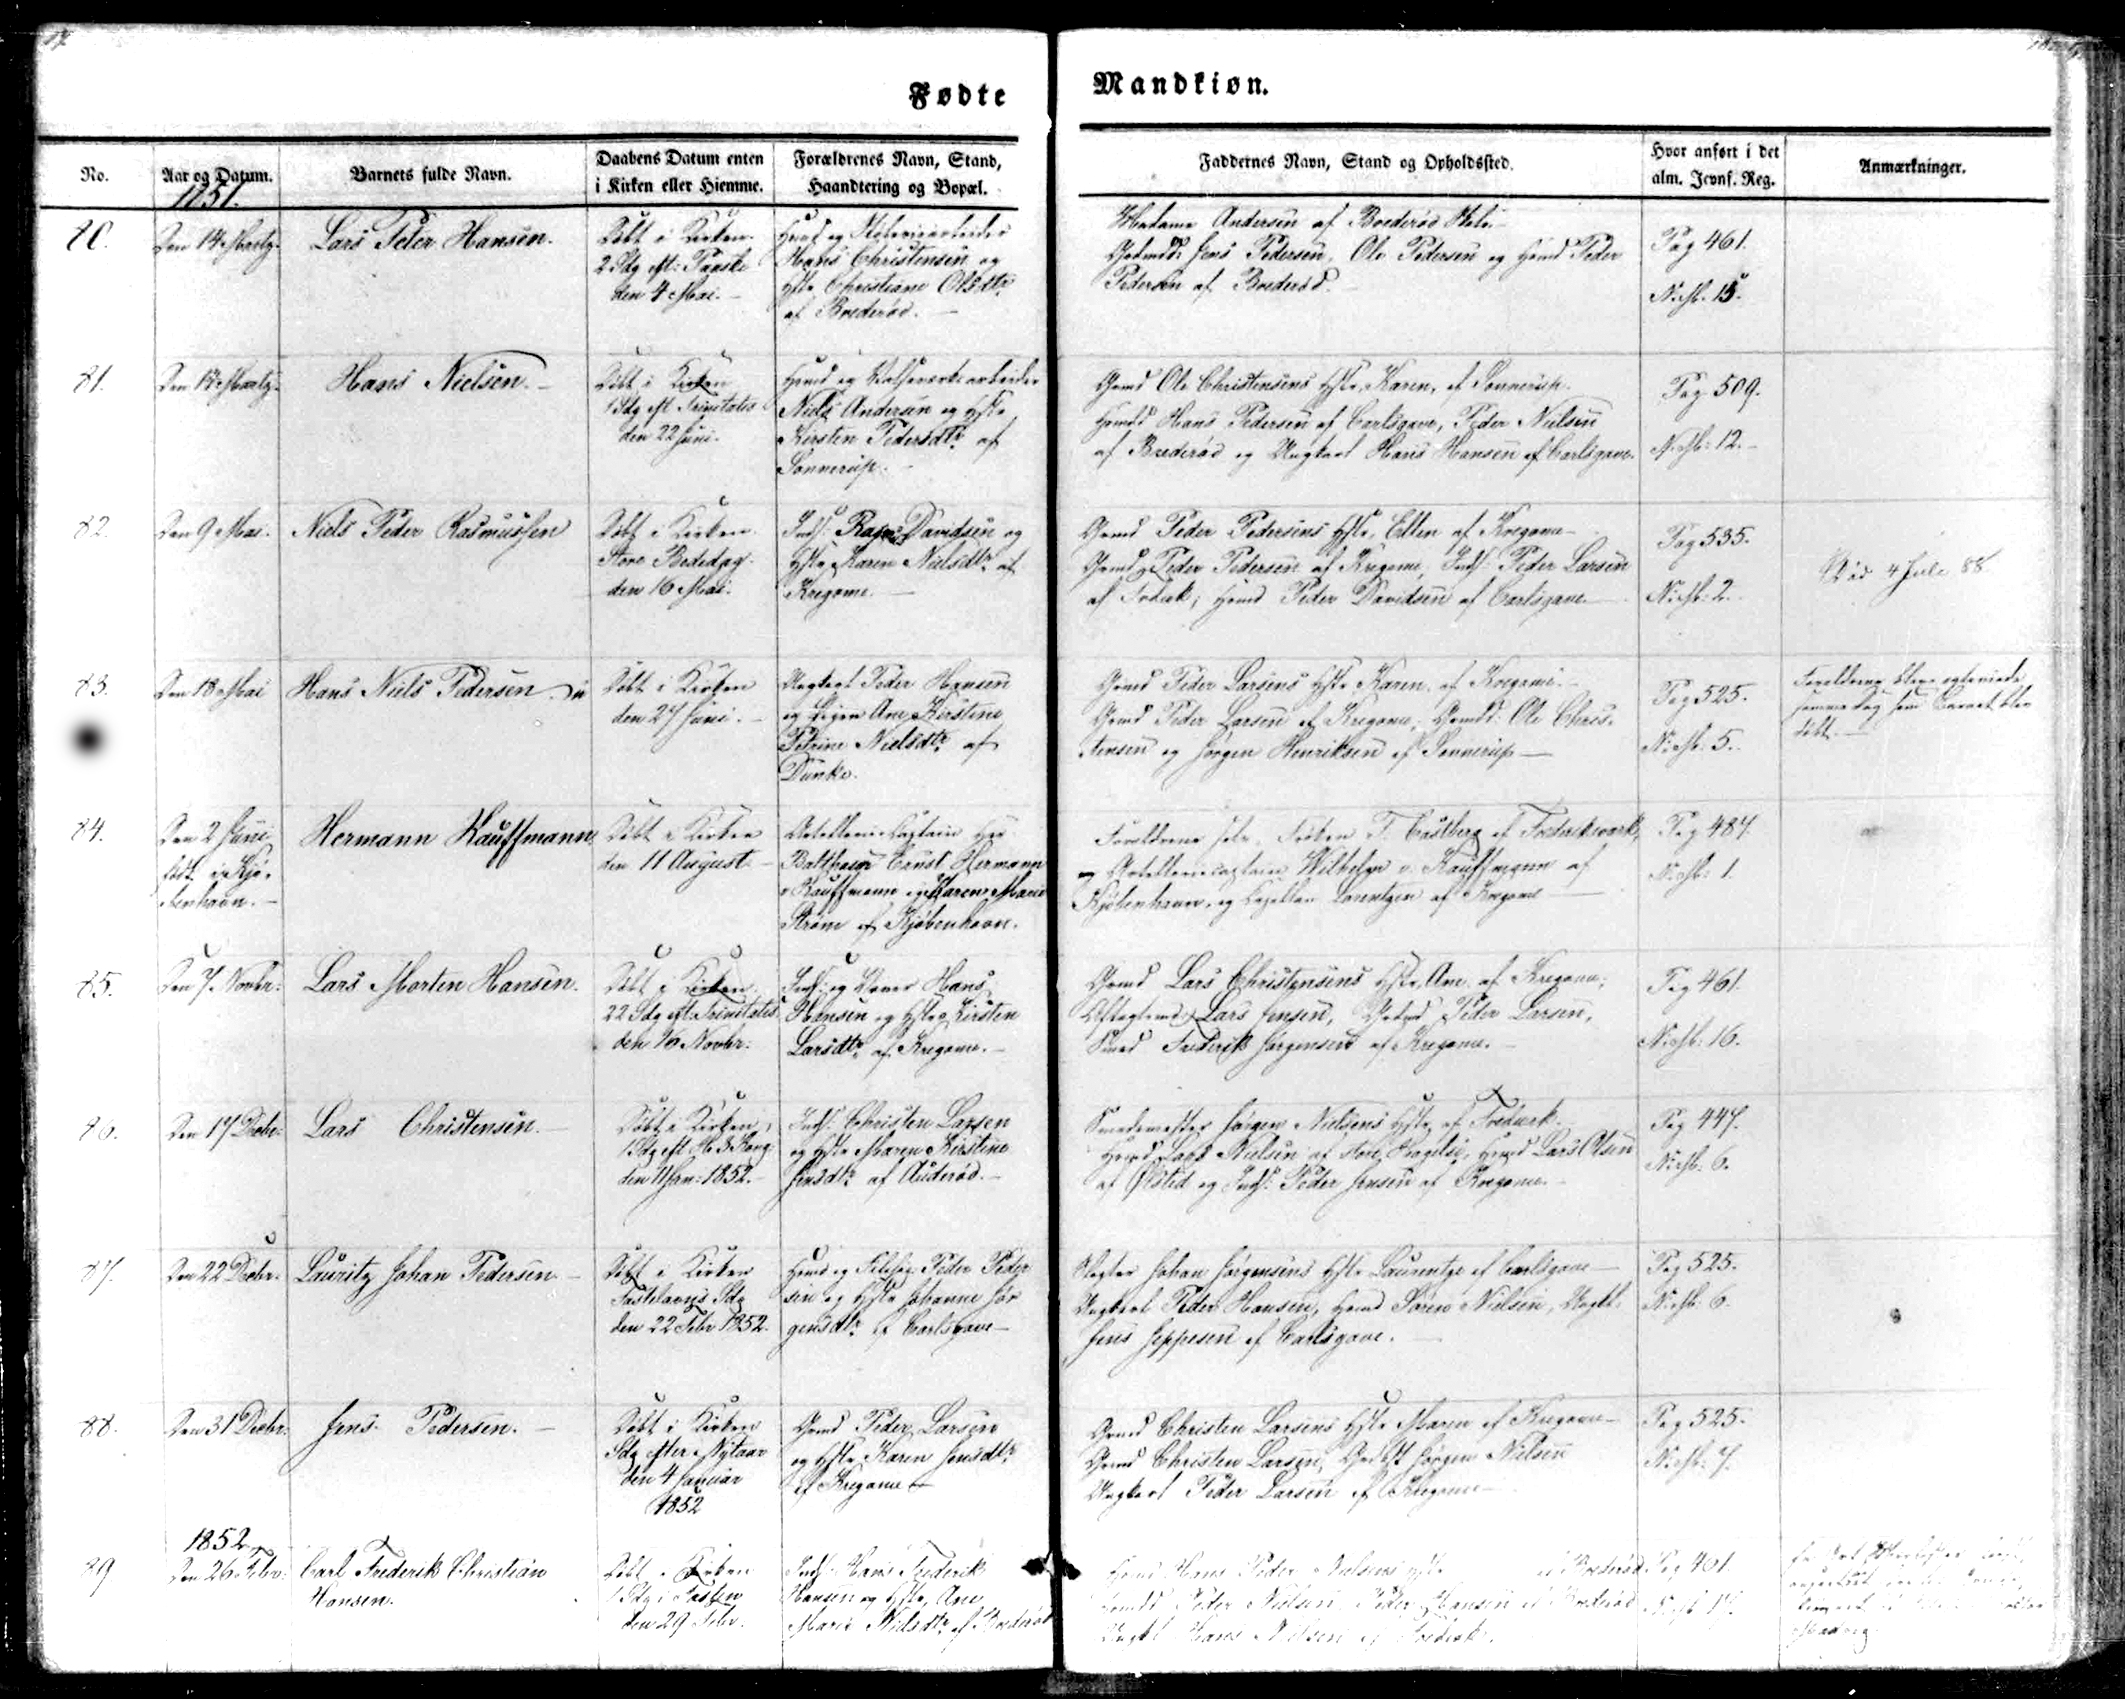 Fødte
Mandkiøn.
No.
Aar og Datum.
Barnets fulde Navn.
Daabens Datum enten
i Kirken eller Hiemme.
Forældrenes Navn, Stand,
Haandtering og Bopæl.
Faddernes Navn, Stand og Opholdssted.
Hvor anført i det
alm. Jevnf. Reg.
Anmærkninger.
1851.
80.
Den 14 Martz.
Lars Peter Hansen.
Døbt i Kirken
2 Sdg eft: Paaske
den 4 Mai.
Hans Christensen og
Hstr Christiane Olsdtr
af Brederød.
Madame Andersen af Brederød
Gaardmd: Jens Pedersen, Ole Pedersen og Hmd Peder
Pedersen af Brederød.
Pag 461.
No. 15.
81.
Den 14 Martz.
Hans Nielsen.
Døbt i Kirken
1 Sdg eft Trinitatis
den 22 Juni.
Hmd og Valseværksarbeider
Niels Andersen og Hstr
Kirsten Pedersdtr af
Sonnerup.
Gmd Ole Christensens Hstr, Karen, af Sonnerup.
Hmd Hans Pedersen af Carlsgave, Peder Nielsen
af Brederød og Ungkarl Hans Hansen af Carlsgave.
Pag 509.
No. 12.
82.
Den 9 Mai.
Niels Peder Rasmussen
Døbt i Kirken
Store Bededag
den 16 Mai.
Inds. Rasm Davidsen og
Hstr Karen Nielsdtr af
Kregome.
Gmd Peder Pedersens Hstr, Ellen af Kregome
Gmd Peder Pedersen af Kregome, Inds. Peder Larsen
af Fredvrk, Hmd Peder Davidsen af Carlsgave.
Pag 535.
No. 2.
4 Juli 88
83.
Den 18 Mai
Hans Niels Pedersen
Døbt i Kirken
den 27 Juni.
Ungkarl Peder Hansen
og Pigen Ane Kirstine
Petrine Nielsdtr af
Dunke.
Gmd Peder Larsens Hstr Karen, af Kregome.
Gmd Peder Larsen af Kregome, Gmdd: Ole Chris-
tensen og Jørgen Henriksen af Sonnerup
Pag 525.
No. 5.
Forældrene bleve egteviede
samme dag som Barnet blev
døbt.
84.
Den 2 Juni
født i Kjø-
benhavn.
Hermann Kauffmann
Døbt i Kirken
den 11 August.
Artelleri-Captain Herr
Balthasar Ernst Hermann
v Kauffmann og Karen Marie
Strøm af Kjøbenhavn.
Forældrene selv, Frøken F. Castberg af Frederiksværk,
og Artellericaptain Wilhelm v. Kauffmann af
Kjøbenhavn, og Capellan Lorentzen af Kregome
Pag 487.
No. 1.
85.
Den 7 Novbr:
Lars Morten Hansen.
Døbt i Kirken
22 Sdg eft Trinitatis
den 16 Novbr:
Inds. og Væver Hans
Hansen og Hstr Kirsten
Larsdtr af Kregome.
Gmd Lars Christensens Hstr, Ane af Kregome,
Aftægtsmd: Lars Jensen, Peder Larsen,
Smed Frederik Jørgensen af Kregome.
Pag 461.
No. 16.
86.
Den 17 Decbr:
Lars Christensen.
Døbt i Kirken,
1 Sdg eft H. 3 Kong:
den 11 Jan: 1852.
Inds. Christen Larsen
og Hstr Maren Kirstine
Jensdtr af Auderød.
Smedemester Jørgen Nielsens Hstr, af Fredvrk.
Hmd Lars Nielsen af Store Havelse, Hmd Lars Olsen
af Ølsted og Inds. Peder Jensen af Kregome.
Pag 447.
No. 6.
87.
Den 22 Decbr:
Lauritz Johan Pedersen
Døbt i Kirken
Fastelavns Sdg
den 22 Febr 1852.
Hmd og Peder Peder
sen og Hstr Johanne Jør
gensdtr af Carlsgave
Slagter Johan Jørgensens Hstr Laurentze af Carlsgave
Ungkarl Peder Hansen, Hmd Søren Nielsen, Ungk:
Jens Jeppesen af Carlsgave.
Pag 525.
No. 6.
88.
Den 31 Decbr:
Jens Pedersen.
Døbt i Kirken
Sdg efter Nytaar
den 4 Januar
1852
Gmd Peder Larsen
og Hstr Karen Jensdtr
af Kregome
Gmd Christen Larsens Hstr Maren af Kregome
Gmd Christen Larsen, Jørgen Nielsen
Ungkarl Peder Larsen af Kregome
Pag 525.
No. 7.
1852
89
Den 26 Febr:
Carl Frederik Christian
Hansen.
Døbt i Kirken
1 Sdg i Fasten
den 29 Febr.
Inds. Hans Frederik
Hansen og Hstr, Ane
Marie Nielsdtr af Brederød
Hmd Hans Peder Nielsens Hstr af Brederød
Hmdd Peder Nielsen, Peder Hansen af Brederød
Ungkl Hans Nielsen af Fredvrk.
Pag 461.
No. 17.